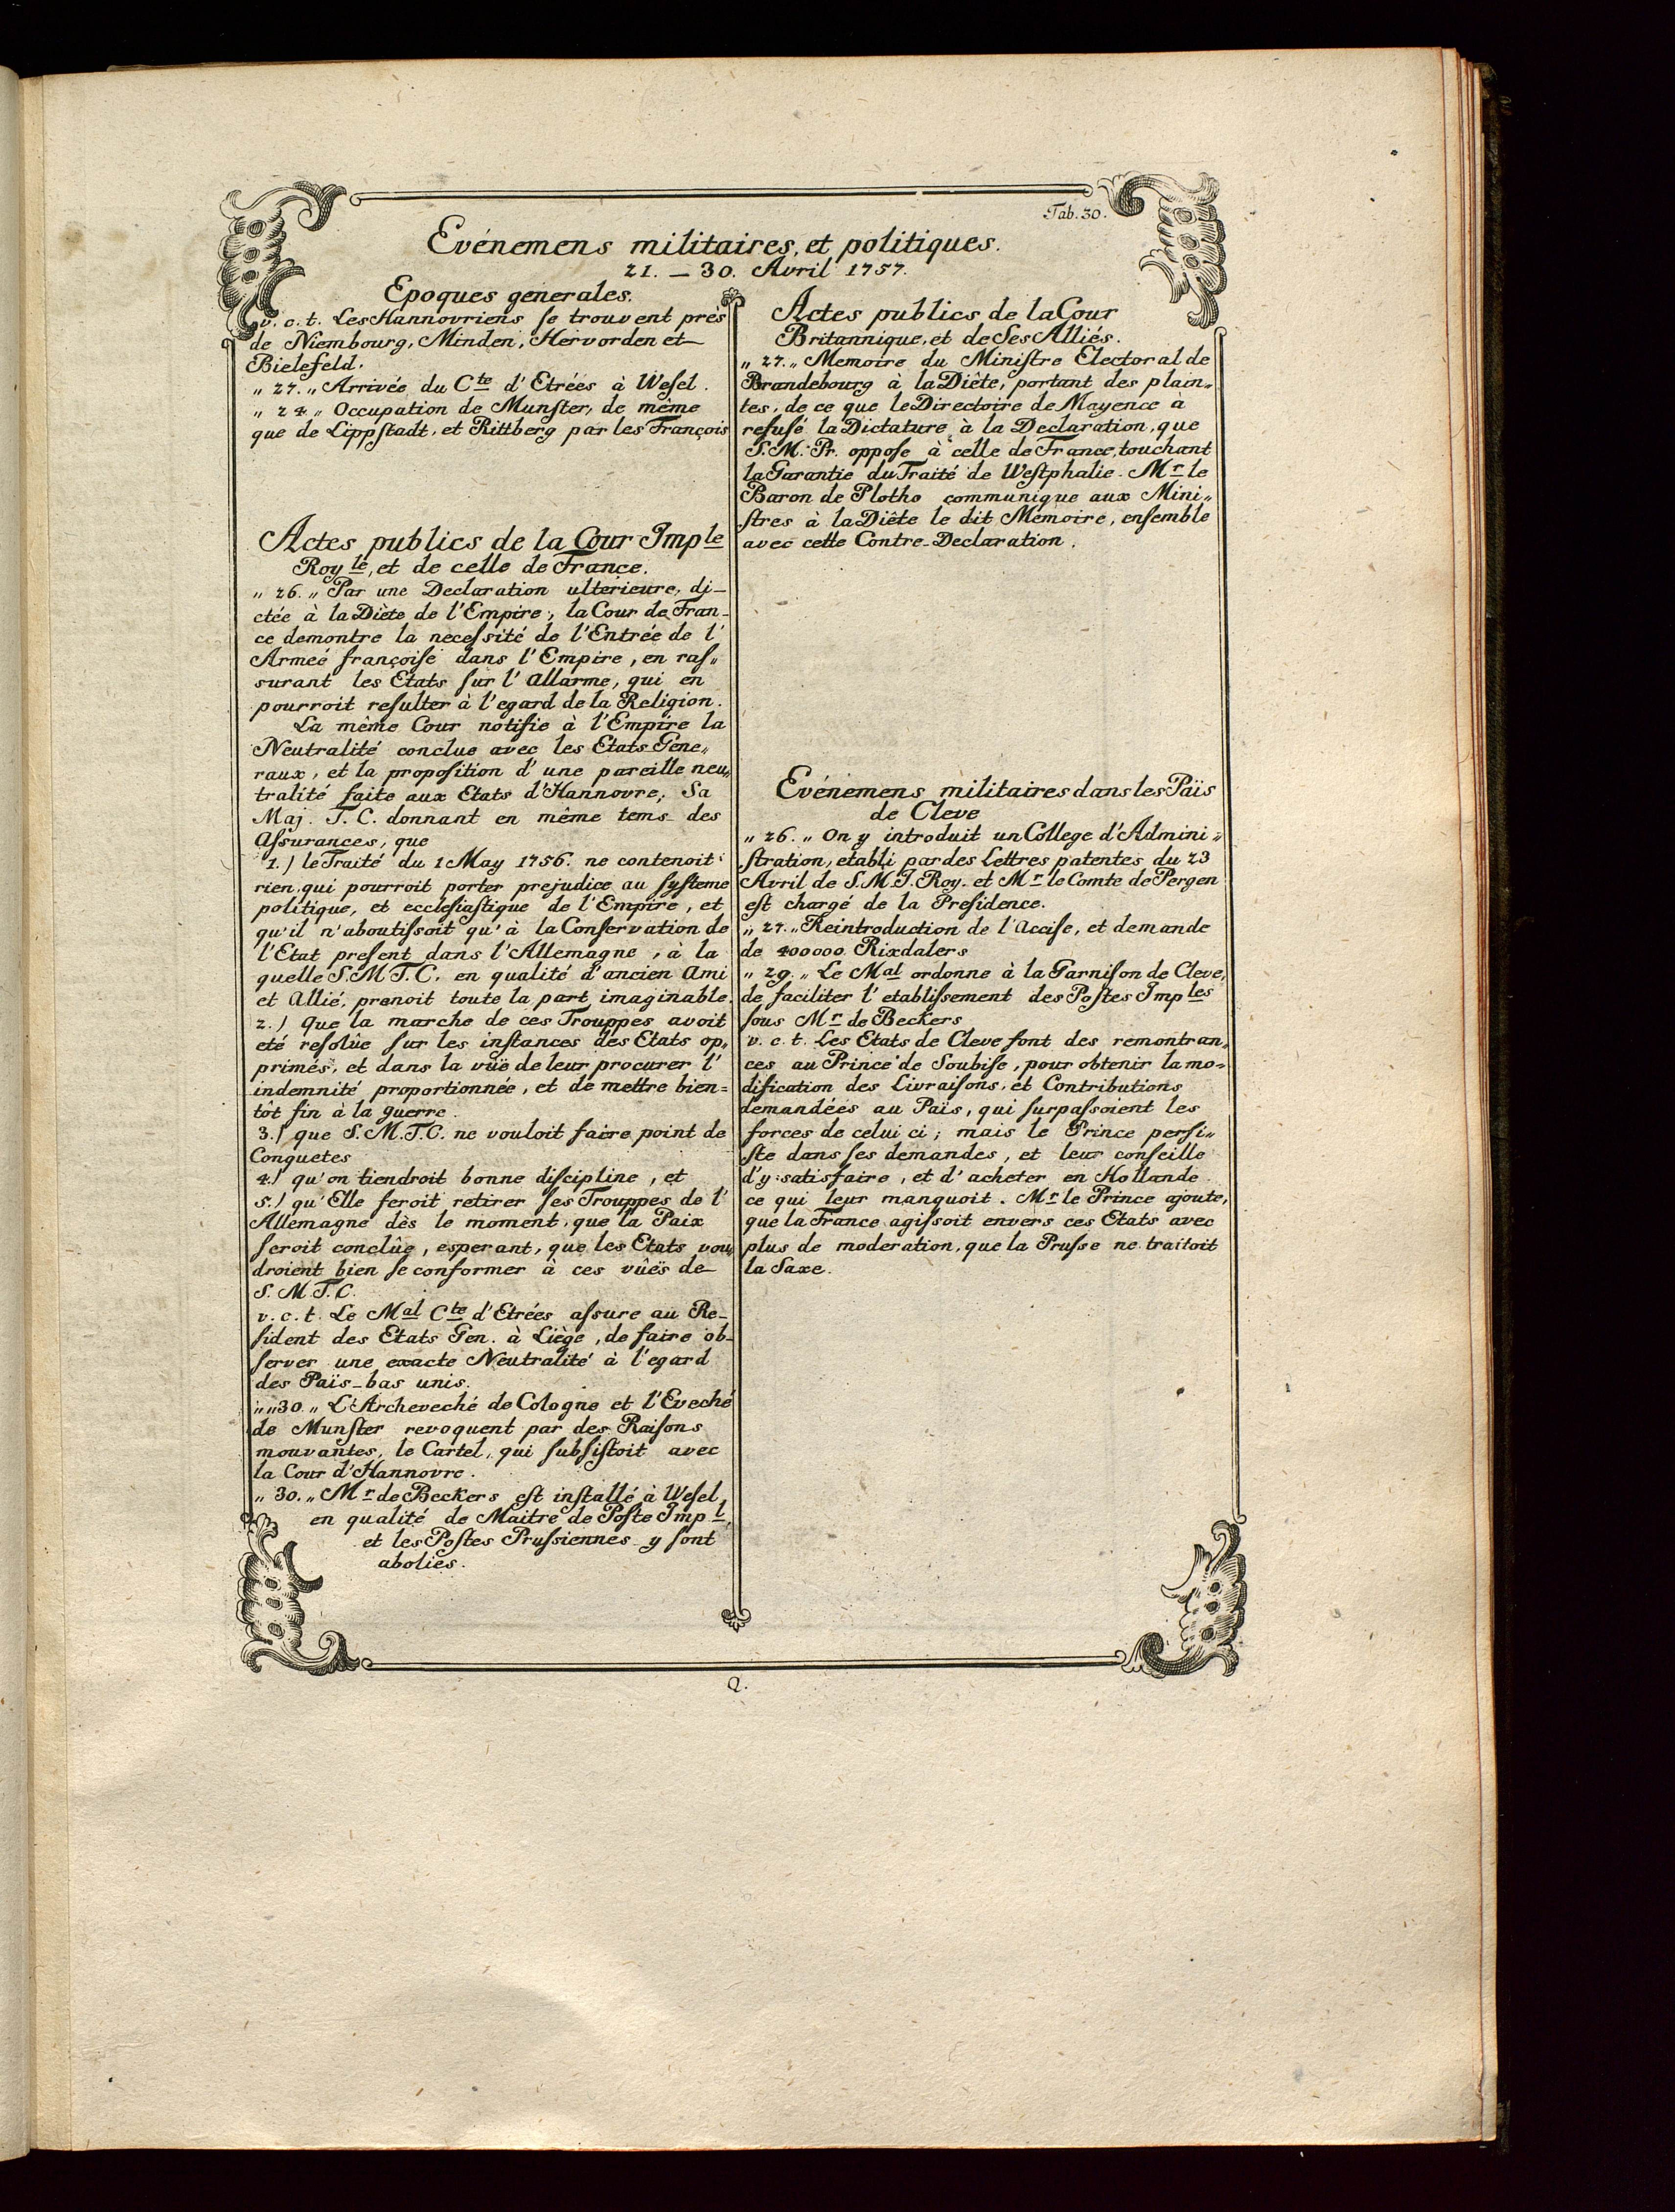 Tab. 30.
Evénemens militaires, et politiques.
21. – 30. Avril 1757.
Epoques generales.
v. c. t. Les Hannovriens se trouvent près
de Niembourg, Minden, Hervorden et
Bielefeld.
„ 27. „ Arrivée du Cte d'Etrées à Wesel.
„ 24 „ Occupation de Munster, de même
que de Lippstadt, et Rittberg par les François
Actes publics de la Cour Imple
Royle, et de celle de France.
„ 26. „ Par une Declaration ulterieure, di-
ctée à la Diète de l'Empire, la Cour de Fran-
ce demontre la necessité de l'Entrée de l'
Armeé françoise dans l'Empire, en ras„
surant les Etats sur l'Allarme, qui en
pourroit resulter à l'egard de la Religion.
La même Cour notifie à l'Empire la
Neutralité conclue avec les Etats Géne„
raux, et la proposition d'une pareille neu„
tralité faite aux Etats d'Hannovre, Sa
Maj. T. C. donnant en même tems des
Assurances, que
1.) le Traité du 1 May 1756. ne contenoit
rien, qui pourroit porter prejudice au systeme
politique, et ecclesiastique de l'Empire, et
qu'il n'aboutissoit qu'à la Conservation de
l'Etat present dans l'Allemagne, à la
quelle S. M T. C. en qualité d'ancien Ami
et Allié, prenoit toute la part imaginable.
2.) Que la marche de ces Trouppes avoit
eté resolûe sur les instances des Etats op„
primés, et dans la vüe de leur procurer l'
indemnité proportionnée, et de mettre bien=
tôt fin à la guerre.
3.) que S. M. T. C. ne vouloit faire point de
Conquetes
4.) qu'on tiendroit bonne discipline, et
5.) qu'Elle feroit retirer ses Trouppes de l'
Allemagne dès le moment, que la Paix
seroit conclûe, esperant, que les Etats vou„
droient bien se conformer à ces vûës de
S. M T. C.
v. c. t. Le Mal Cte d'Etrées assure au Re-
sident des Etats Gen. à Liège, de faire ob-
server une exacte Neutralité à l'egard
des Païs-bas unis.
„ „ 30 „ L'Archeveché de Cologne et l'Eveché
de Munster revoquent par des Raisons
mouvantes, le Cartel, qui subsistoit avec
la Cour d'Hannovre.
„ 30. „ Mr de Beckers est installé à Wesel,
en qualité de Maitre de Poste Impl,
et les Postes Prussiennes y sont
abolies.
Actes publics de la Cour
Britannique, et de Ses Alliés.
„ 27. „ Memoire du Ministre Electoral de
Brandebourg à la Diête, portant des plain„
tes, de ce que le Directoire de Mayence à
refusé la Dictature à la Declaration, que
S. M. Pr. oppose à celle de France, touchant
la Garantie du Traité de Westphalie. Mr le
Baron de Plotho communique aux Mini„
stres à la Diête le dit Memoire, ensemble
avec cette Contre-Declaration.
Evénemens militaires dans les Païs
de Cleve
„ 26. „ On y introduit un College d'Admini„
stration, etabli par des Lettres patentes du 23
Avril de S. M. I. Roy. et Mr le Comte de Pergen
est chargé de la Presidence.
„ 27. „ Reintroduction de l'Accise, et demande
de 400000 Rixdalers
„ 29. „ Le Mal ordonne à la Garnison de Cleve,
de faciliter l'etablissement des Postes Imples
sous Mr de Beckers
v. c. t. Les Etats de Cleve font des remontran„
ces au Prince de Soubise, pour obtenir la mo-
dification des Livraisons, et Contributions
demandées au Païs, qui surpassoient les
forces de celui ci; mais le Prince persi„
ste dans ses demandes, et leur conseille
d'y satisfaire, et d'acheter en Hollande
ce qui leur manquoit. Mr le Prince ajoute,
que la France agissoit envers ces Etats avec
plus de moderation, que la Prusse ne traitoit
la Saxe.
Q.